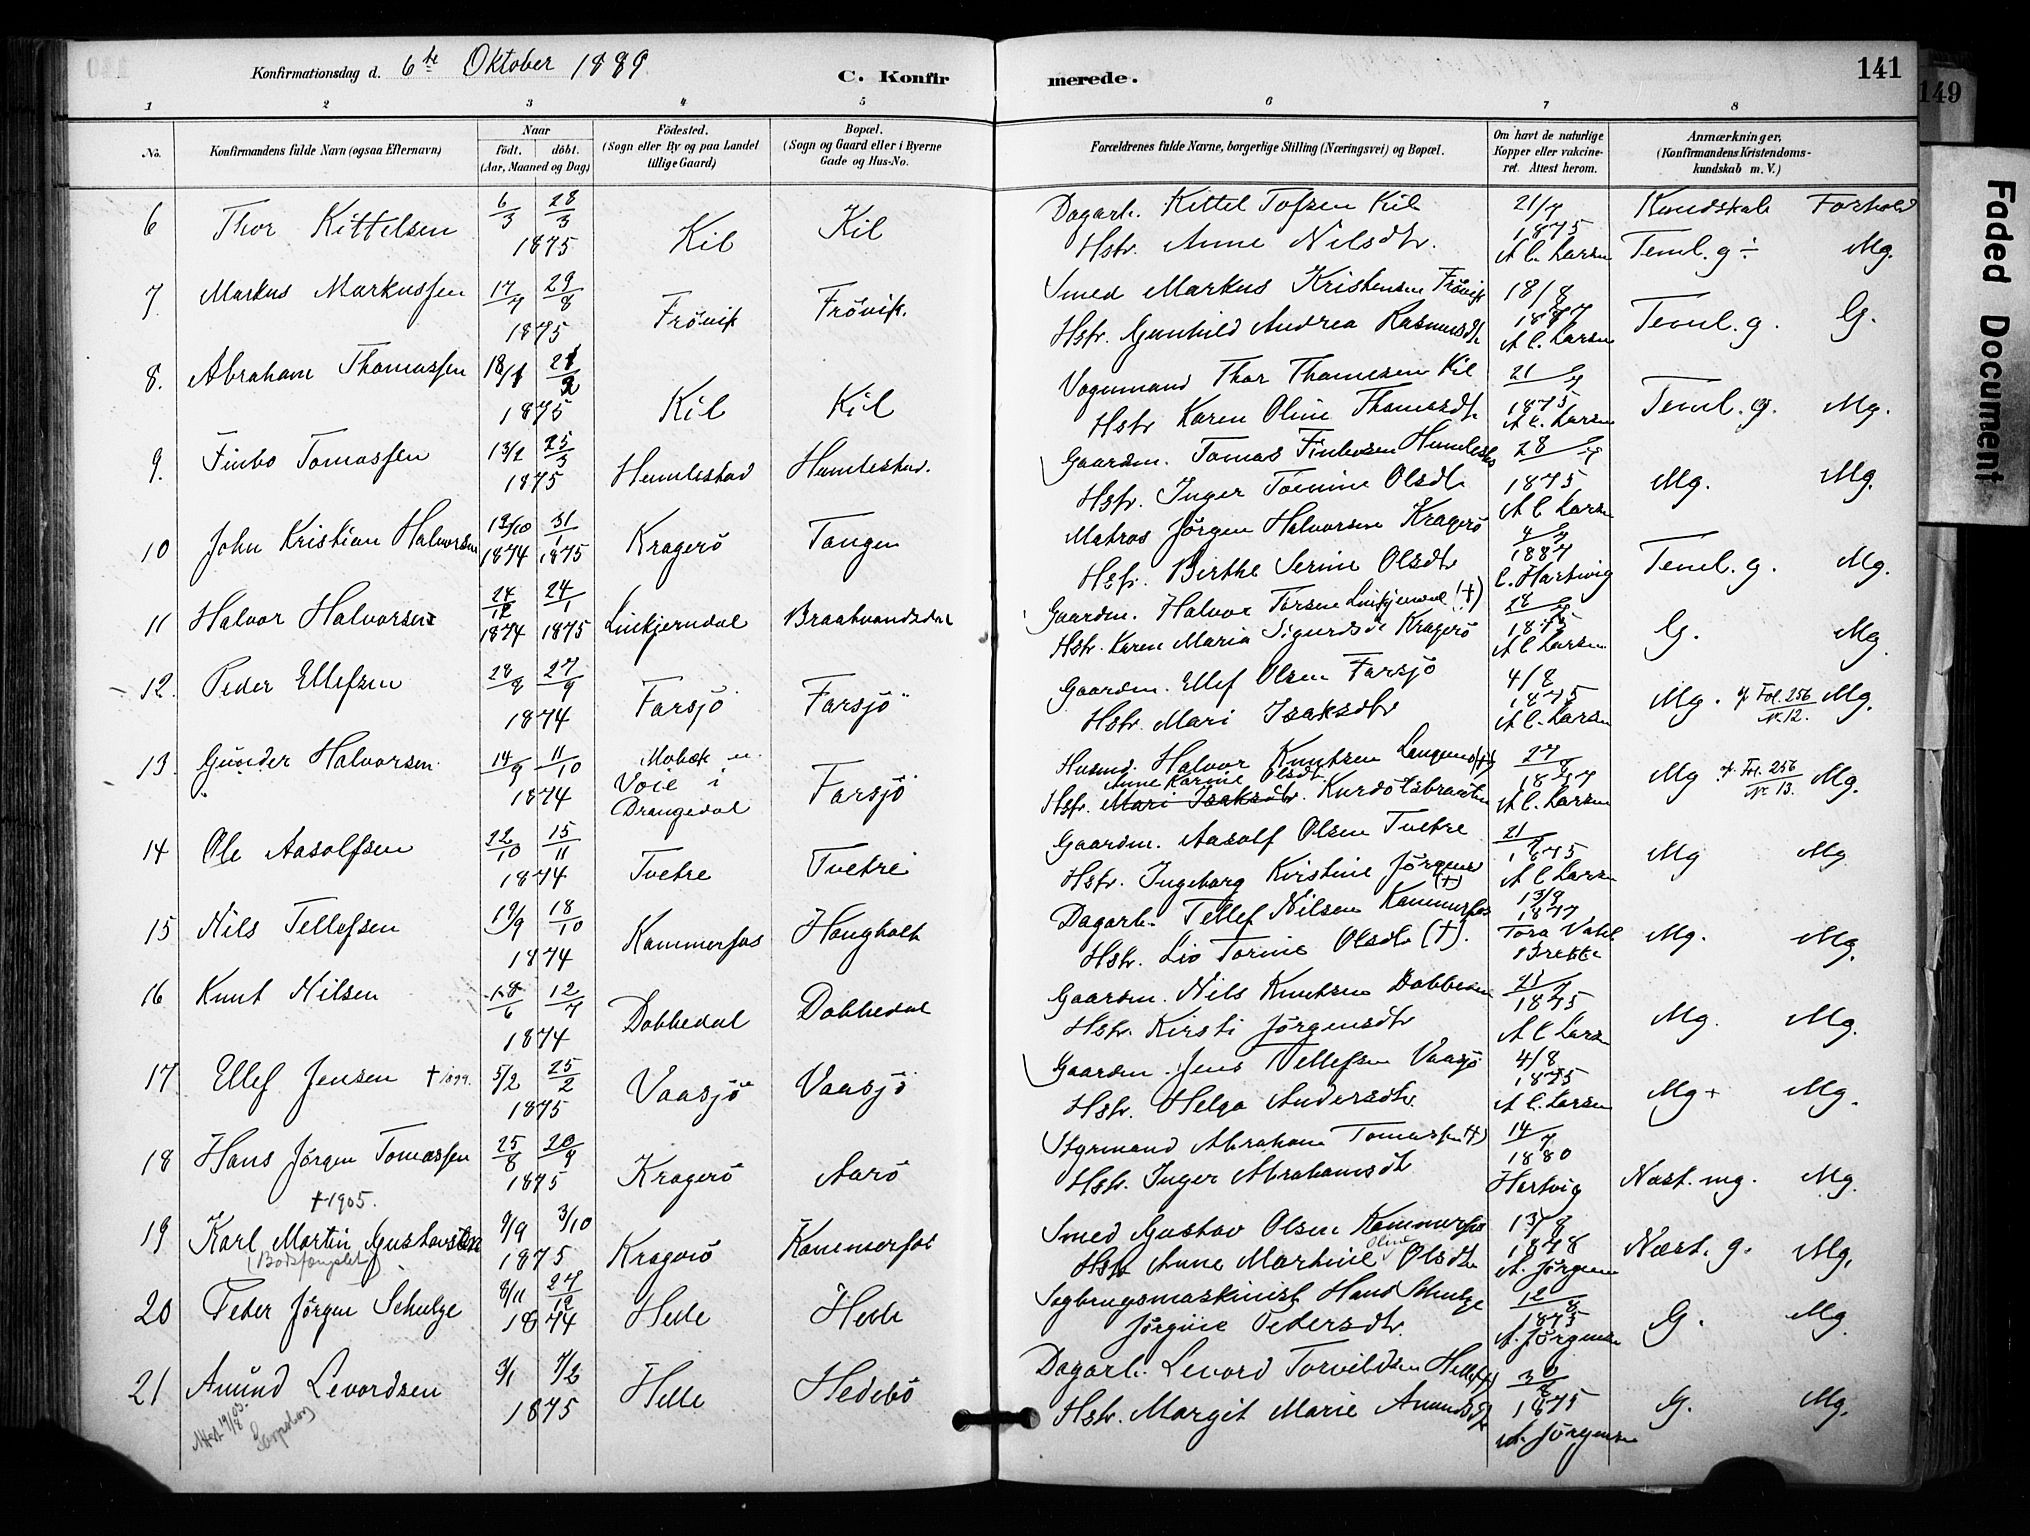 Konfirmationsdag d. 6te Oktober 1889
C. Konfirmerede.
141
149
Faded Document
1 2 3 4 5 6 7 8
No.
Konfirmandens fulde Navn (ogsaa Efternavn)
Naar
födt. döbt.
(Aar, Maaned og Dag)
Födested.
(Sogn eller By og paa Landet
tillige Gaard)
Bopæl.
(Sogn og Gaard eller i Byerne
Gade og Hus-No.
Forældrenes fulde Navne, borgerlige Stilling (Næringsvei) og Bopæl.
Om havt de naturlige
Kopper eller vakcine-
ret. Attest herom.
Anmærkninger,
(Konfirmandens Kristendoms-
kundskab m. V.)
Kundskab Forhold
6 Thor Kittelsen 6/3 28/3 1875 Kil Kil Dagarb. Kittel Tofsen Kil
Hstr. Anne Nilsdtr. 21/7 1875 A C. Larsen Teml. g ÷ Mg.
7. Markus Markussen 17/7 29/8 1875 Frövik Frövik. Smed Markus Kristensen Frövik
Hstr. Gunhild Andrea Rasmusdt. 18/8 1877 A C. Larsen Teml. g. G.
8. Abraham Thomassen 18/1 21/2 1875 Kil Kil Vognmand Thor Thomesen Kil
Hstr. Karen Oline Thomasdt. 21/7 1875 A C. Larsen Teml. g. Mg.
9. Finbo Tomassen 13/2 25/3 1875 Humlestad Humlestad. Gaardm. Tomas Finbosen Humlestad
Hstr. Inger Tomine Olsdt. 28/7 1875 A C Larsen Mg. Mg.
10 John Kristian Halvorsen 19/10 1874 31/1 1875 Kragerö Tangen Matros Jörgen Halvorsen Kragerö
Hstr. Birthe Serine Olsdtr 4/7 1887 C. Hartwig Teml. g. Mg.
11 Halvor Halvorsen 24/12 1874 24/1 1875 Linkjerndal Braatvandsdal Gaardm. Halvor Torsen Linkjerndal (+)
Hstr. Karen Maria Sigurdsdt Kragerö 28/7 1875 A C Larsen G. Mg.
12. Peder Ellefsen 28/8 27/9 1874 Farsjö Farsjö Gaardm. Ellef Olsen Farsjö
Hstr. Mari Isaksdtr 4/8 1875 A C. Larsen Mg. cf Fol. 256 Nr. 12. Mg.
13. Gunder Halvorsen 14/9 11/10 1874 Mobæk u.
Voie i
Drangedal Farsjö Husmd. Halvor Knutsen (+)
Anne Karine Olsdt
Hstr. Mari Isaksdtr. 27/8 1877 A C. Larsen Mg cf. Fol. 256 Nr. 13. Mg.
14 Ole Aasolfsen 22/10 15/11 1874 Tvetre Tvetre Gaardm. Aasolf Olsen Tvetre
Hstr. Ingeborg Kirstine Jörgensd 21/7 1875 A C Larsen Mg Mg
15 Nils Tellefsen 19/9 18/10 1874 Kammerfos Haugholt Dagarb. Tellef Nilsen Kammerfos (+)
Hstr. Liv Torine Olsdt. (+). 13/9 1877 Tora Brekke Mg. Mg.
16 Knut Nilsen 18/6 12/7 1874 Dobbedal Dobbedal Gaardm. Nils Knutsen Dobbedal
Hstr. Kirsti Jörgensdtr 21/7 1875 A C Larsen Mg. Mg.
17 Ellef Jensen + 1899. 5/2 25/2 1875 Vaasjö Vaasjö Gaardm. Jens Tellefsen Vaasjö
Hstr. Helga Andersdtr. 4/8 1875 A C. Larsen Mg+ Mg.
18 Hans Jörgen Tomassen 25/8 20/9 1875 Kragerö Aarö Styrmand Abraham Tomassen +)
Hstr. Inger Abrahamsdt. 14/7 1880 Hartvig Næst. mg. Mg.
+1905.
19 Karl Martin Gustavsen 9/9 3/10 1875 Kragerö Kammerfos Smed Gustav Olsen Kammerfos
Hstr Anne Martine Oline Olsdtr 13/8 1878 A. Jörgensen Næst. g. Mg.
(Bodsfængslet)
20 Peder Jörgen Schulze 8/11 27/12 1874 Helle Helle Sagbrugsmaskinist Hans Schulze
Jörgine Pedersdtr. 12/8 1875 A. Jörgensen G. Mg
21 Amund Levordsen 3/1 7/2 1875 Helle Hedebö Dagarb. Levord Torvildsen Helle (+)
Hstr. Margit Marie Amundsdt 30/8 1875 A. Jörgensen G. Mg.
Attest 19/8 03.
Sarpsborg